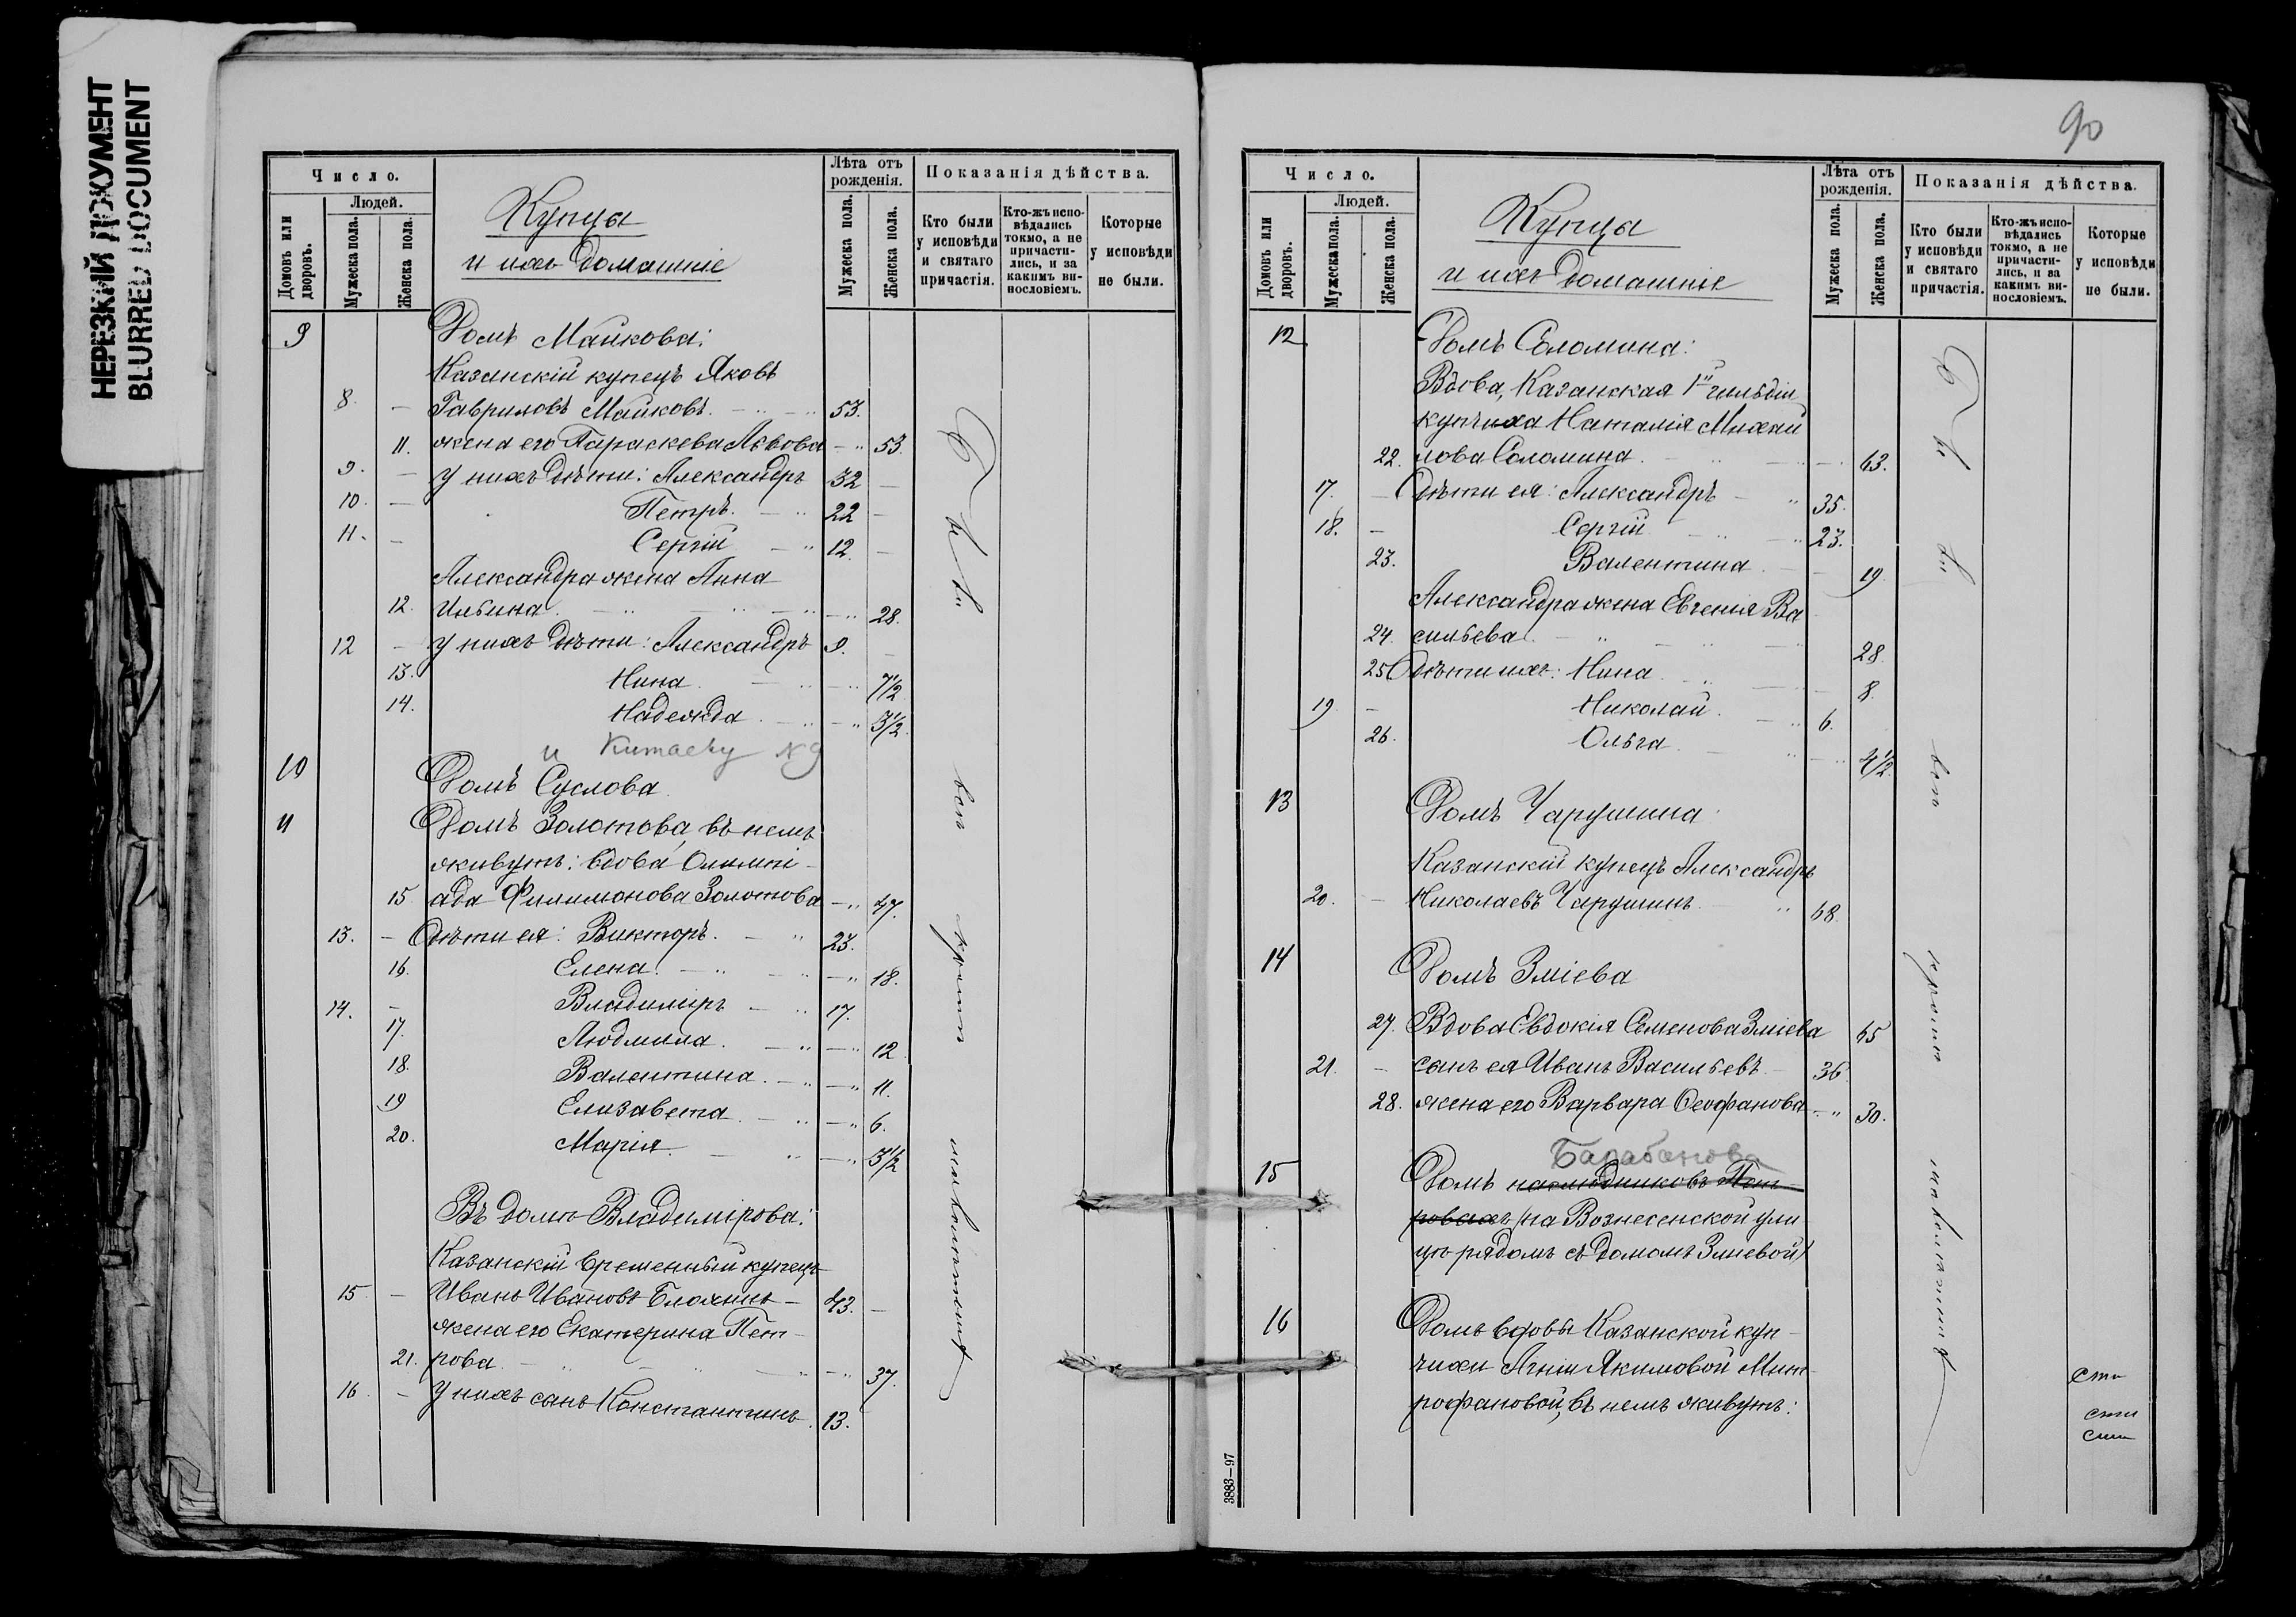 НЕРЕЗКИЙ ДОКУМЕНТ
BLURRED DOCUMENT
Число.
Людей.
Домовъ или дворовъ.
Мужеска пола.
Женска пола.
Купцы
и ихъ домашніе
Лѣта отъ рожденія.
Мужеска пола.
Женска пола.
Показанія дѣйства.
Кто были у исповѣди и святаго причастія.
Кто-жъ исповѣдались токмо, а не причастились, и за какимъ винословіемъ.
Которые у исповѣди не были.
9 Домъ Майкова:
Казанскій купецъ Яковъ
8. — Гавриловъ Майковъ. 53.
11. жена его Параскева Львова — 53.
9. — У нихъ дѣти: Александръ 32 —
10. — Петръ. 22 —
11. — Сергій 12. —
Александра жена Анна
12. Ильина. — 28.
12 — У нихъ дѣти: Александръ 9. —
13. Нина. — 7½
14. Надежда. — 3½
и Китаеву №9
10 Домъ Суслова
11 Домъ Золотова, въ немъ
живутъ: вдова Олимпі-
15 ада Филимонова Золотова — 47.
13. — Дѣти ея: Викторъ. 23.
16. Елена. — 18.
14. — Владиміръ 17.
17. Людмила. — 12
18. Валентина. — 11.
19 Елизавета — 6.
20. Марія. — 3½
Въ домѣ Владимірова:
Казанскій временный купецъ
15 — Иванъ Ивановъ Бложинъ — 43. —
жена его Екатерина Пет-
21. рова — 37.
16. — У нихъ сынъ Константинъ. 13.
Были
вси
кромѣ
малолѣтнихъ
90
Число.
Людей.
Домовъ или дворовъ.
Мужеска пола.
Женска пола.
Купцы
и ихъ домашніе
Лѣта отъ рожденія.
Мужеска пола.
Женска пола.
Показанія дѣйства.
Кто были у исповѣди и святаго причастія.
Кто-жъ исповѣдались токмо, а не причастились, и за какимъ винословіемъ.
Которые у исповѣди не были.
12 Домъ Соломина:
Вдова, Казанская 1й гильдіи
купчиха Наталія Михай
22. лова Соломина. — 63.
17. — Дѣти ея: Александръ 35.
18. — Сергій 23.
23. Валентина — 19
Александра жена Евгенія Ва
24. сильева 28
25 Дѣти ихъ: Нина 8.
19 — Николай. 6.
26. Ольга — 4½
13 Домъ Чарушина
Казанскій купецъ Александръ
20. — Николаевъ Чарушинъ 68
14 Домъ Зміева
27. Вдова Евдокія Семенова Зміева 65
21. — сынъ ея Иванъ Васильевъ 36
28. жена его Варвара Ѳеофанова — 30.
Барабанова
15 Домъ наслѣдниковъ Пет-
ровыхъ (на Вознесенской ули
цѣ рядомъ съ домомъ Зміевой)
16 Домъ вдовы Казанской куп-
чихи Агніи Якимовой Мит-
рофановой, въ немъ живутъ:
Были
вси
кромѣ
малолѣтнихъ
3883—97